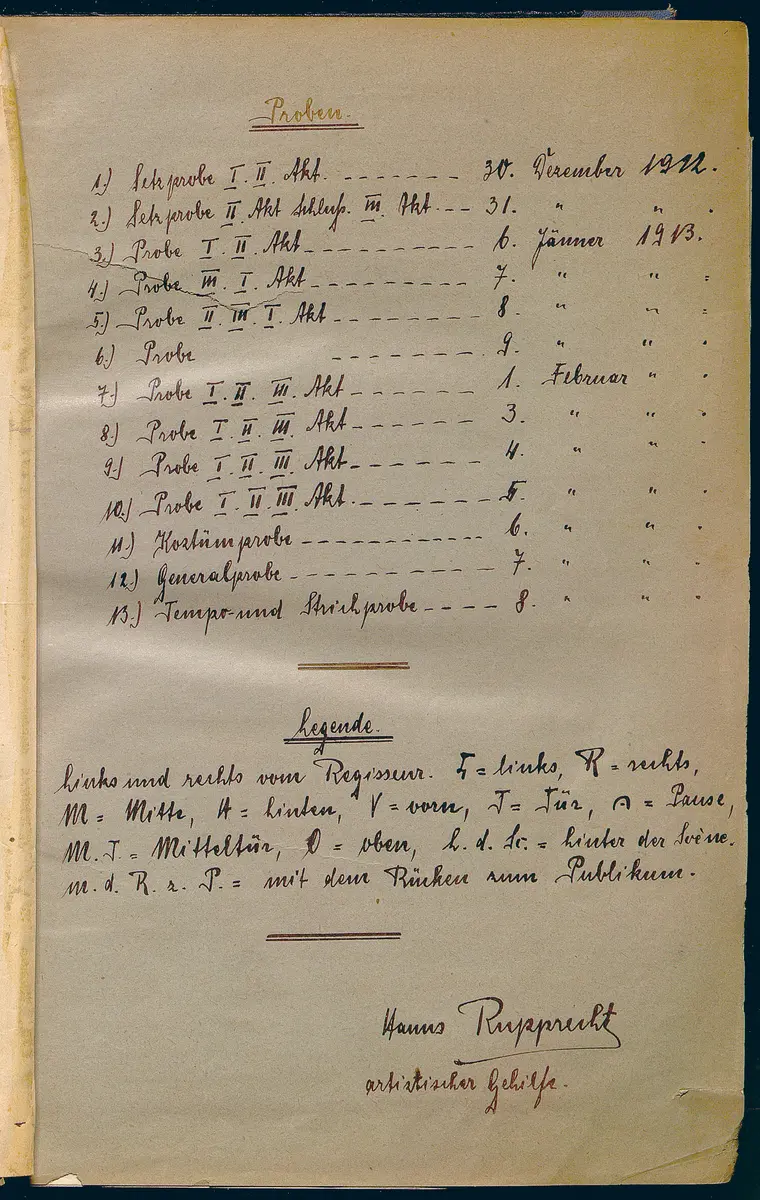 Proben.
1.) Setzprobe I. II. Akt. - - - - - - - 30. Dezember 1912.
2.) Setzprobe II Akt Schluß. III. Akt. - - 31. " " .
3.) Probe I. II. Akt - - - - - - - - - 6. Jänner 1913.
4.) Probe III. I. Akt - - - - - - - - - 7. " " "
5.) Probe II. III. I. Akt - - - - - - - - 8. " " "
6.) Probe - - - - - - - - 9. " " .
7.) Probe I. II. III. Akt - - - - - - - 1. Februar " .
8.) Probe I. II. III. Akt - - - - - - - 3. " " .
9.) Probe I. II. III. Akt - - - - - - - 4. " " .
10.) Probe I. II. III. Akt. - - - - - - - 5. " " .
11.) Kostümprobe - - - - - - - - - - - 6. " " .
12.) Generalprobe - - - - - - - - - - - 7. " " .
13.) Tempo- und Strichprobe - - - - 8. " " "
Legende.
links und rechts vom Regisseur. L = links, R = rechts,
M = Mitte, H = hinten, V = vorn, T = Tür, 𝄐 = Pause,
M. T. = Mitteltür, O = oben, h. d. Sc. = hinter der Scène.
m. d. R. z. P. = mit dem Rücken zum Publikum.
Hanns Rupprecht
artistischer Gehilfe.